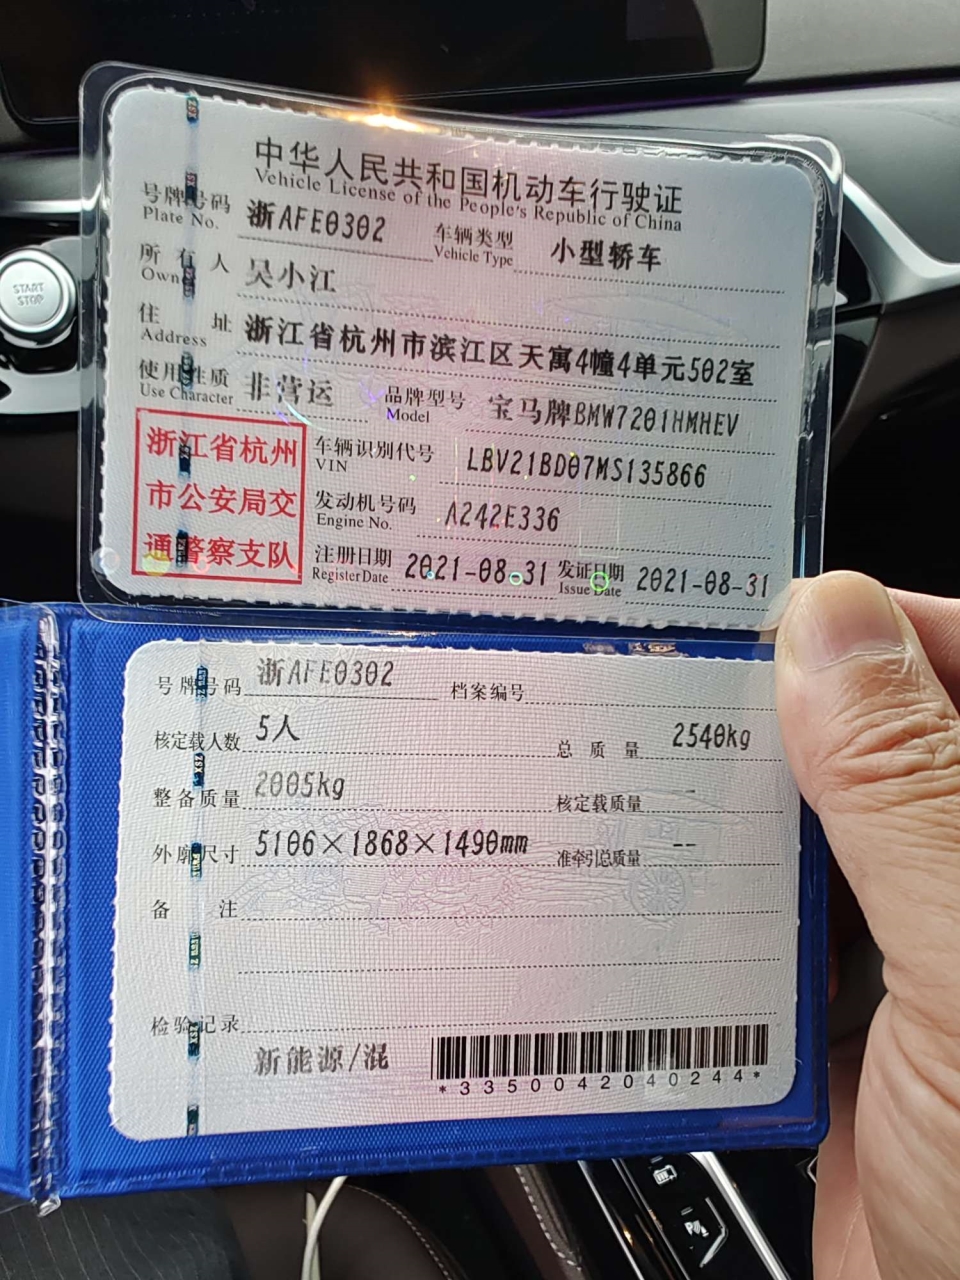 START
STOP
中华人民共和国机动车行驶证
Vehicle License of the People's Republic of China
号牌号码 浙AFE0302 车辆类型 小型轿车
Plate No. Vehicle Type
所有人 吴小江
Owner
住址 浙江省杭州市滨江区天寓4幢4单元502室
Address
使用性质 非营运 品牌型号 宝马牌BMW7201HMHEV
Use Character Model
浙江省杭州
市公安局交
通警察支队
车辆识别代号 LBV21BD07MS135866
VIN
发动机号码 A242E336
Engine No.
注册日期 2021-08-31 发证日期 2021-08-31
Register Date Issue Date
号牌号码 浙AFE0302 档案编号
核定载人数 5人 总质量 2540kg
整备质量 2005kg 核定载质量 --
外廓尺寸 5106×1868×1490mm 准牵引总质量 --
备注
检验记录
新能源/混
*3350042040244*